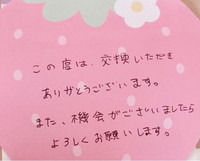 この度は、交換いただき
ありがとうございます。
また、機会がございましたら
よろしくお願いします。